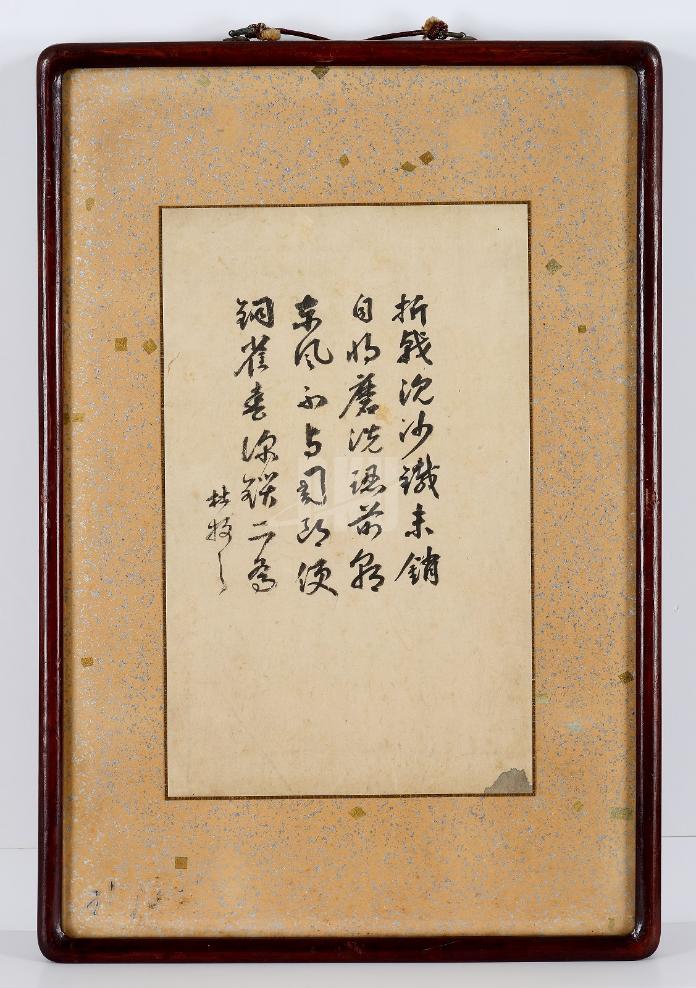 折戟沈沙鐵未銷
自將磨洗認前朝
東風不與周郎便
銅雀春深鎖二喬
杜牧之